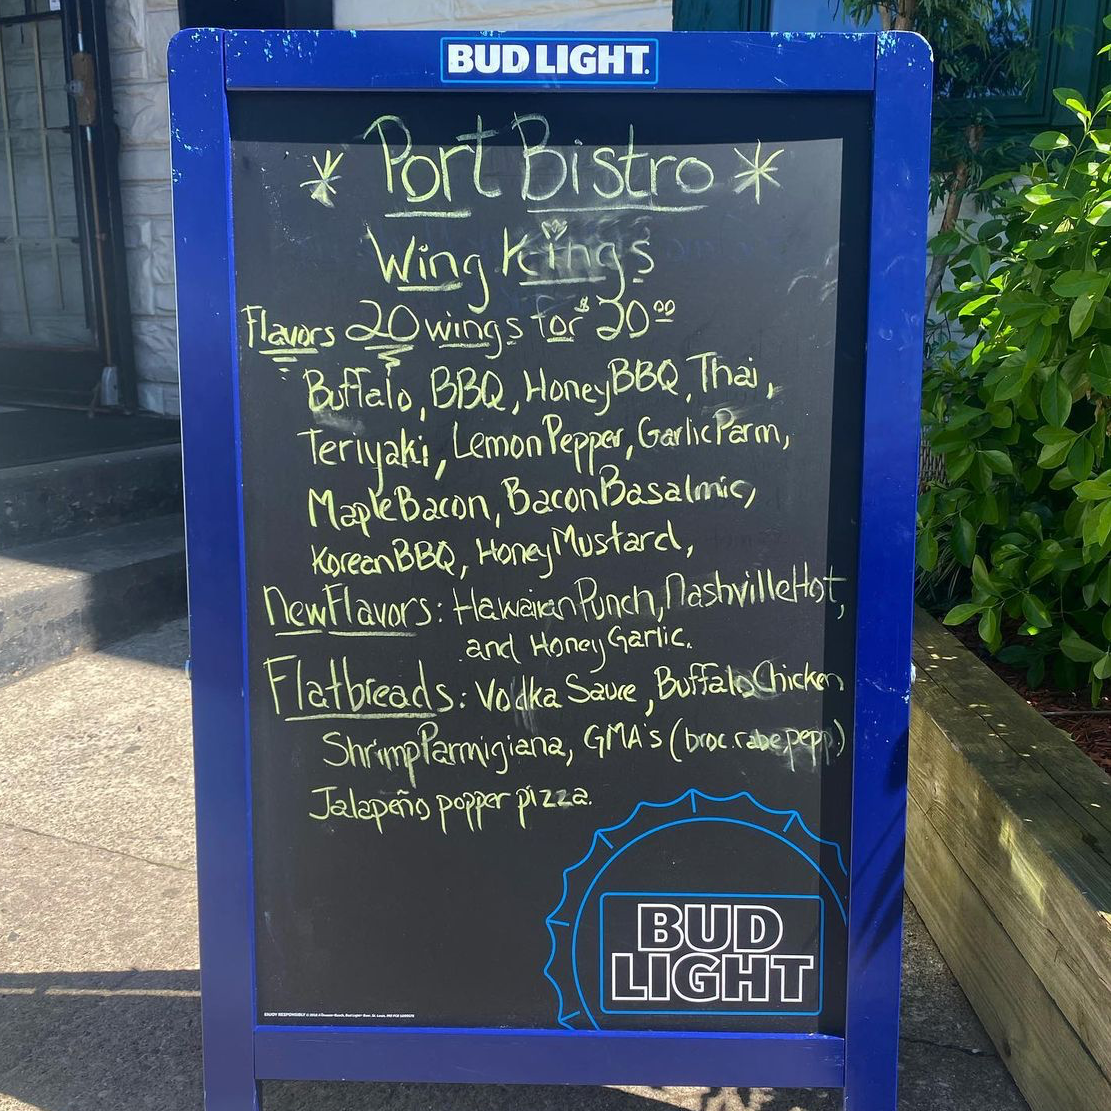 BUD LIGHT.
* Port Bistro *
Wing Kings
Flavors 20 wings for $20.00
Buffalo, BBQ, Honey BBQ, Thai,
Teriyaki, Lemon Pepper, Garlic Parm,
Maple Bacon, Bacon Basalmic,
Korean BBQ, Honey Mustard,
New Flavors: Hawaiian Punch, Nashville Hot,
and Honey Garlic.
Flatbreads: Vodka Sauce, Buffalo Chicken
Shrimp Parmigiana, GMA's (broc.rabe,pepp.)
Jalapeño popper pizza.
BUD
LIGHT
ENJOY RESPONSIBLY